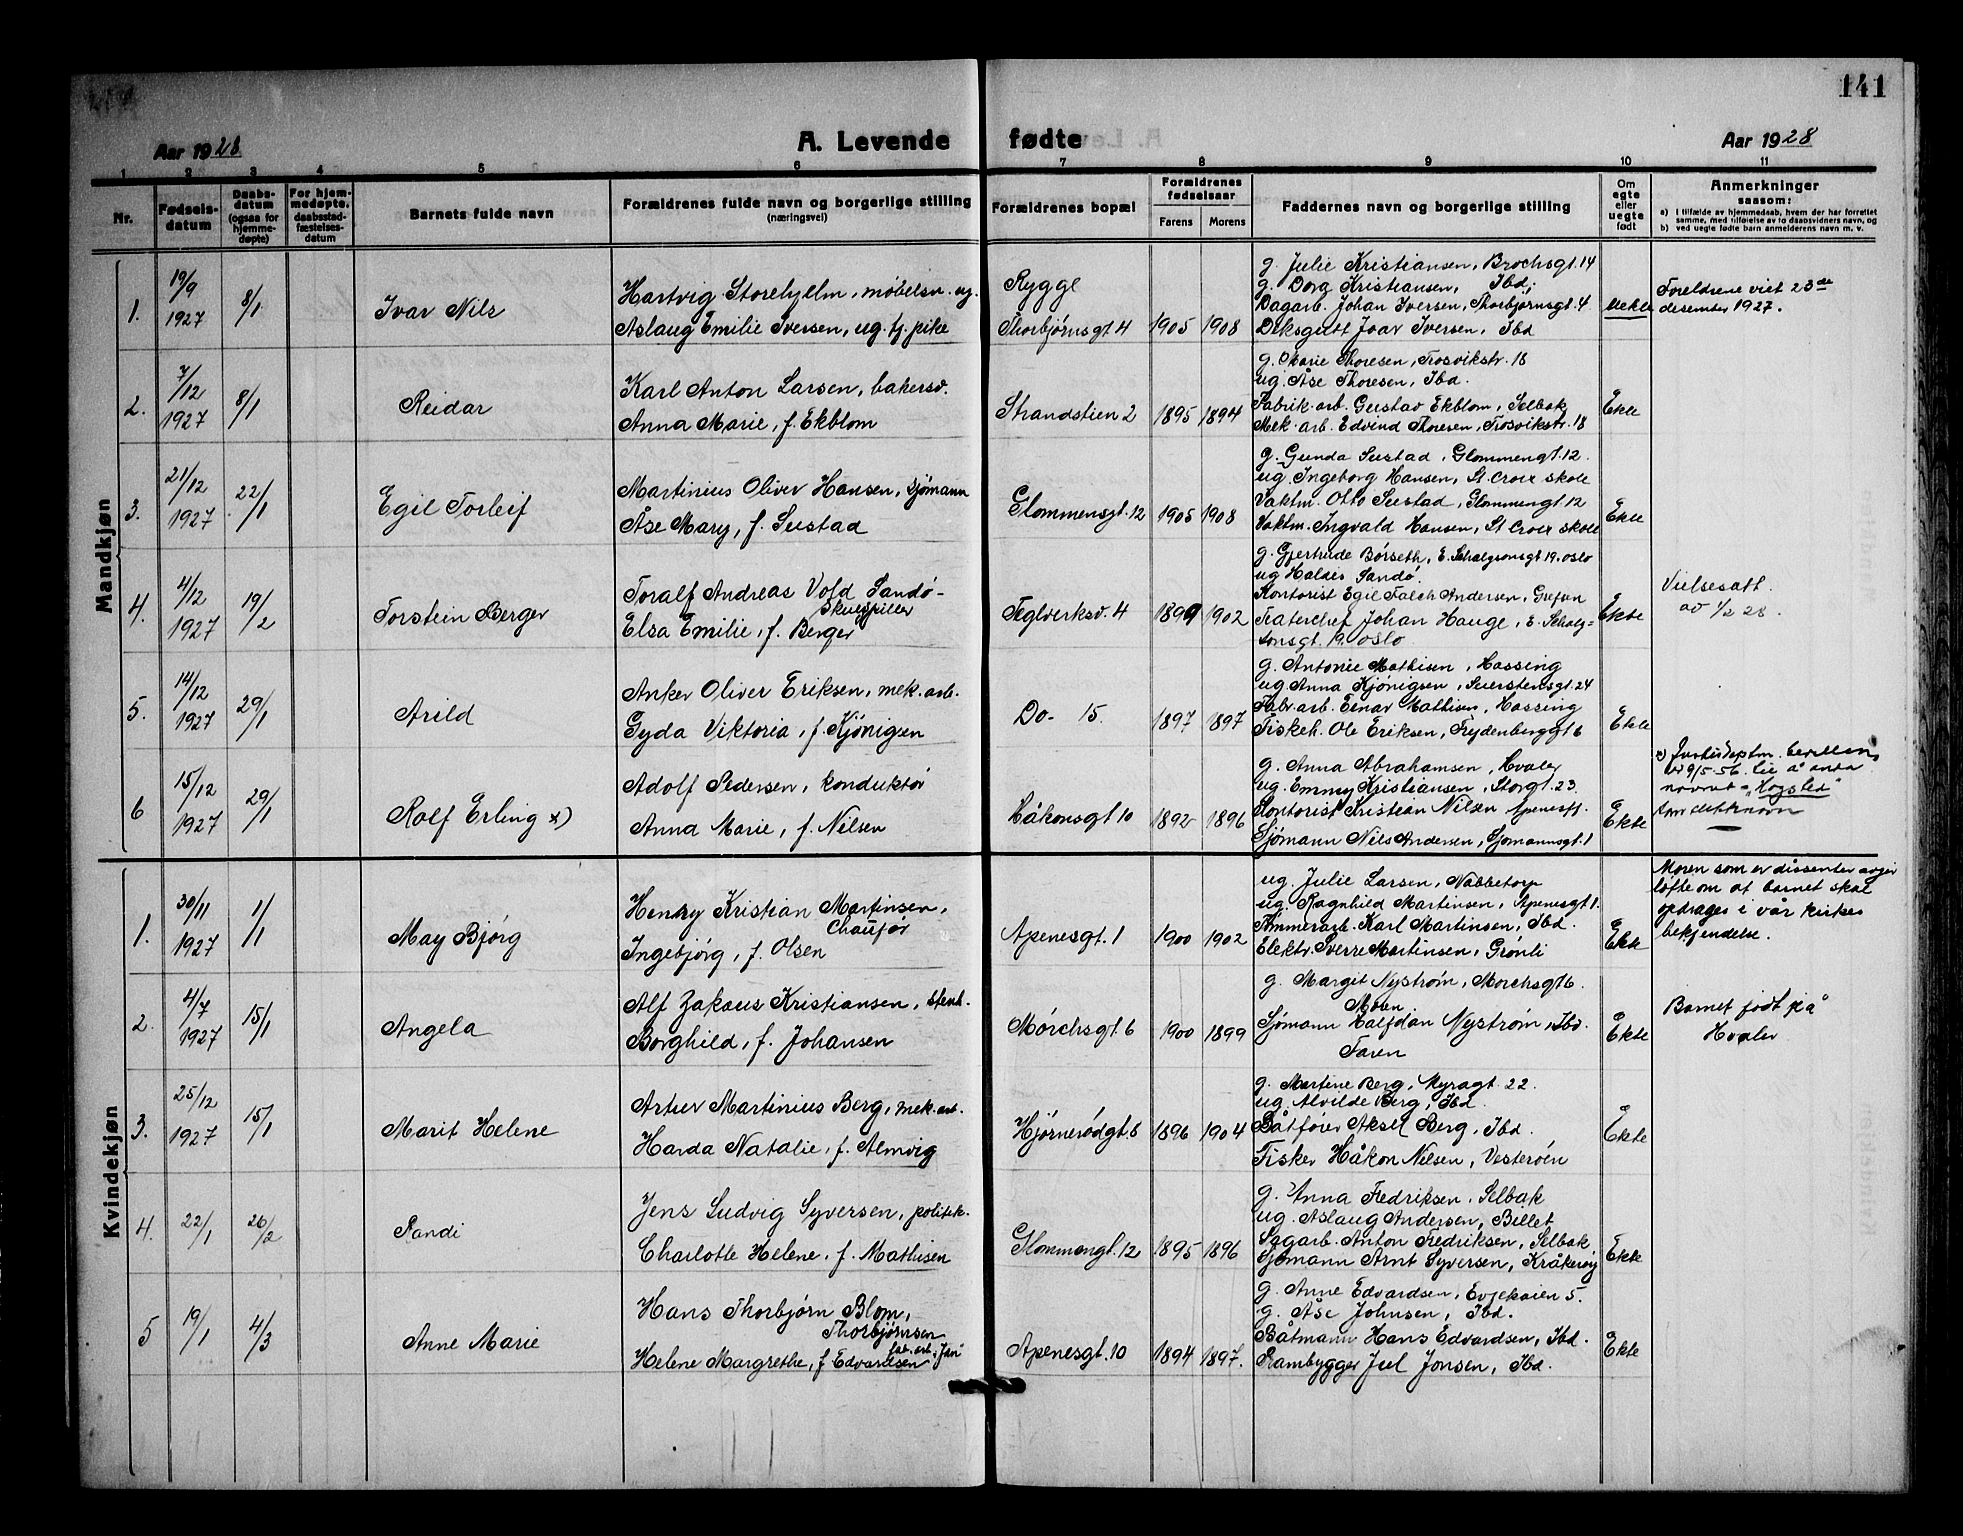 141
Aar 1928
A. Levende fødte
Aar 1928
1 2 3 4 5 6 7 8 9 10 11
Nr.
Fødsels-
datum
Daabs-
datum
(ogsaa for
hjemme-
døpte)
For hjem-
medøpte.
daabsstad-
fæstelses-
datum
Barnets fulde navn
Forældrenes fulde navn og borgerlige stilling
(næringsvei)
Forældrenes bopæl
Forældrenes
fødselsaar
Farens Morens
Faddernes navn og borgerlige stilling
Om
egte
eller
uegte
født
Anmerkninger
saasom:
a) i tilfælde av hjemmedaab, hvem der har forrettet
samme, med tilføielse av to daabsvidners navn, og
b) ved uegte fødte barn anmelderens navn m. v.
Mandkjøn
1. 19/9 1927 8/1 Ivar Nils
Hartvig Storehjelm, møbelsn. ug.
Aslaug Emilie Iversen, ug. tj. pike
Rygge
Thorbjørnsgt. 4 1905 1908
g. Julie Kristiansen, Brochsgt. 14
g. Dorg Kristiansen, Ibd.
Dagarb. Johan Iversen, Thorbjørnsgt. 4
Deksgutt Ivar Iversen, Ibd
Uekte
Foreldrene viet 23de
desember 1927.
2. 7/12 1927 8/1 Reidar
Karl Anton Larsen, bakersv.
Anna Marie, f. Ekblom
Strandstien 2 1895 1894
g. Marie Thoresen, Trosvikstr. 18
ug. Åse Thoresen, Ibd.
Fabrik. arb. Gustav Ekblom, Selbak
Mek. arb. Edvind Thoresen, Trosvikstr. 18
Ekte
3. 21/12 1927 22/1 Egil Torleif
Martinius Oliver Hansen, sjømann
Åse Mary, f. Sustad
Glommensgt. 12 1905 1908
g. Gunda Sustad, Glommengt. 12.
ug. Ingeborg Hansen, St. Croix skole
Vaktm. Otto Sustad, Glommengt. 12
Vaktm. Ingvald Hansen, St Croix skole
Ekte
4. 4/12 1927 19/2 Torstein Berger
Toralf Andreas Vold Sandø-
Skuespiller
Elsa Emilie, f. Berger
Teglverksv. 4 1899 1902
g. Gjertrude Børseth, E. Schalgsonsgt 19. oslo
ug Haldis Sandø.
Kontorist Egil Falch Andersen, Grefsen
Teaterchef Johan Hauge, E. Schalg=
sonsgt. 19. oslo
Ekte
Vielsesatt.
av 1/2 28.
5. 14/12 1927 29/1 Arild
Anker Oliver Eriksen, mek. arb.
Gyda Viktoria, f. Kjønigsen
Do- 15. 1897 1897
g. Antonie Mathisen, Hassing
ug. Anna Kjønigsen, Suerstensgt. 24
Fabr. arb. Einar Mathisen, Hassing
Fiskeh. Ole Eriksen, Frydenberggt 6
Ekte
6 15/12 1927 29/1 Rolf Erling x)
Adolf Pedersen, konduktør
Anna Marie, f. Nilsen
Håkonsgt. 10 1892 1896
g. Anna Abrahamsen, Hvaler
ug. Emmy Kristiansen, Storgt. 23.
Kontorist Kristian Nilsen Apenesgt.
Sjømann Nils Andersen, Sjømannsgt. 1
Ekte
x) Justisdeptm. bevilling
av 9/5-56. til å anta
navnet "Hogsled"
som slektsnavn
Kvindekjøn
1. 30/11 1927 1/1 May Bjørg
Henry Kristian Martinsen,
Chauffør
Ingebjørg, f. Olsen
Apenesgt. 1 1900 1902
ug. Julie Larsen, Nabbetorp
ug. Ragnhild Martinsen, Apenesgt 1.
Tømmerarb. Karl Martinsen, Ibd.
Elektr. Sverre Martinsen, Grønli
Ekte
Moren som er dissenter avgir
løfte om at barnet skal
opdrages i vår kirkes
bekjendelse.
2. 4/7 1927 15/1 Angela
Alf Zakaus Kristiansen, stenh.
Borghild, f. Johansen
Mørchsgt 6 1900 1899
g. Margit Nystrøm, Morchsgt 6.
Moren
Sjømann Halfdan Nystrøm, Ibd.
Faren
Ekte
Barnet født på
Hvaler
3. 25/12 1927 15/1 Marit Helene
Artur Martinius Berg, mek. arb.
Harda Natalie, f. Almvig
Hjørnerødgt. 6 1896 1904
g. Martine Berg, Myragt. 22.
ug Alvilde Berg, Ibd.
Båtfører Aksel Berg, Ibd.
Fisker Håkon Nilsen, Vesterøen
Ekte
4. 22/1 26/2 Randi
Jens Ludvig Syversen, politik.
Charlotte Helene, f. Mathisen
Glommengt. 12 1895 1896
g. Anna Fredriksen, Selbak
ug. Aslaug Andersen, Billet
Sagarb. Anton Fredriksen, Selbak
Sjømann Arnt Syversen, Kråkerøy
Ekte
5 19/1 4/3 Anne Marie
Hans Thorbjørn Blom,
Thorbjørnsen
fab. arb. "Jan"
Helene Margrethe, f Edvardsen
Apenesgt. 10 1894 1897.
g. Anne Edvardsen, Evjekaien 5.
g. Åse Johnsen, Ibd.
Båtmann Hans Edvardsen, Ibd.
Rambygger Juel Jonsen, Ibd.
Ekte